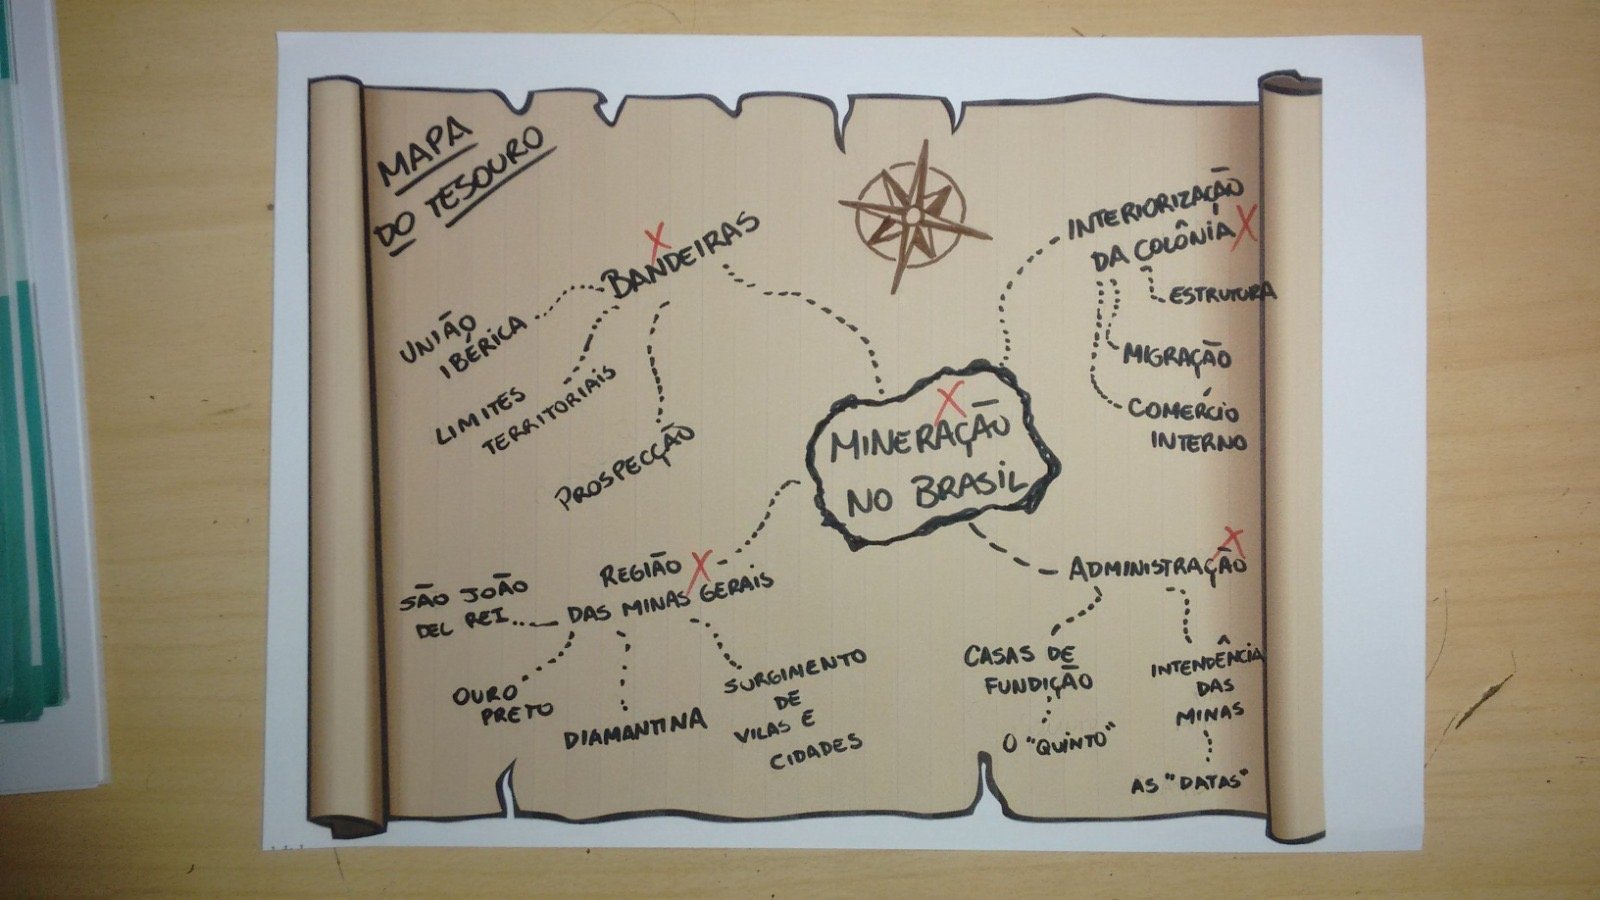 MAPA
DO TESOURO
BANDEIRAS
UNIÃO
IBÉRICA
LIMITES
TERRITORIAIS
PROSPECÇÃO
INTERIORIZAÇÃO
DA COLÔNIA
ESTRUTURA
MIGRAÇÃO
COMÉRCIO
INTERNO
MINERAÇÃO
NO BRASIL
REGIÃO
DAS MINAS GERAIS
SÃO JOÃO
DEL REI
OURO
PRETO
DIAMANTINA
SURGIMENTO
DE
VILAS E
CIDADES
ADMINISTRAÇÃO
CASAS DE
FUNDIÇÃO
O "QUINTO"
INTENDÊNCIA
DAS
MINAS
AS "DATAS"